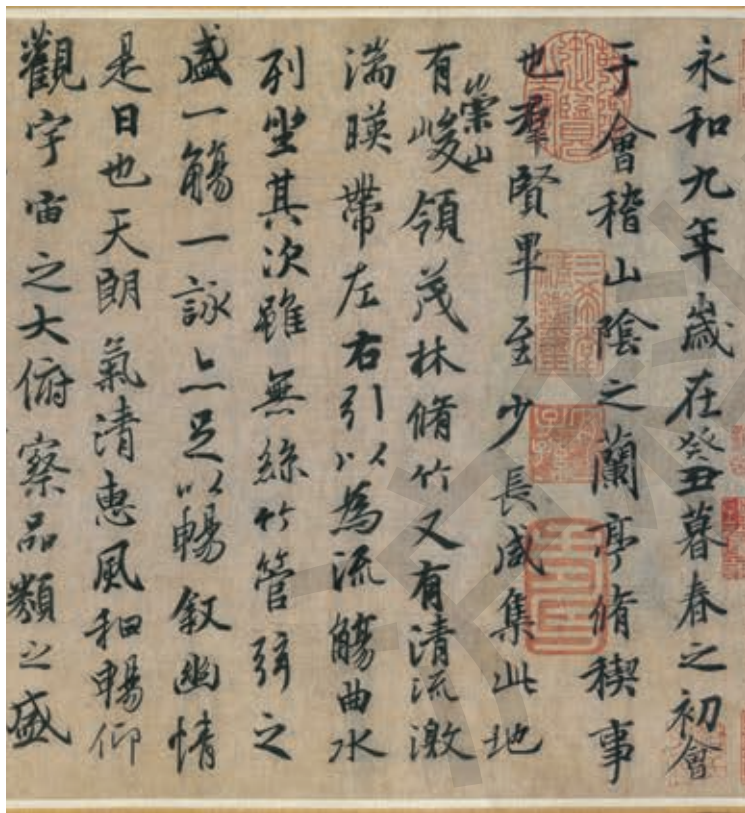 永和九年歲在癸丑暮春之初會
于會稽山陰之蘭亭脩稧事
也羣賢畢至少長咸集此地
有崇山峻領茂林脩竹又有清流激
湍暎帶左右引以為流觴曲水
列坐其次雖無絲竹管弦之
盛一觴一詠亦足以暢叙幽情
是日也天朗氣清惠風和暢仰
觀宇宙之大俯察品類之盛